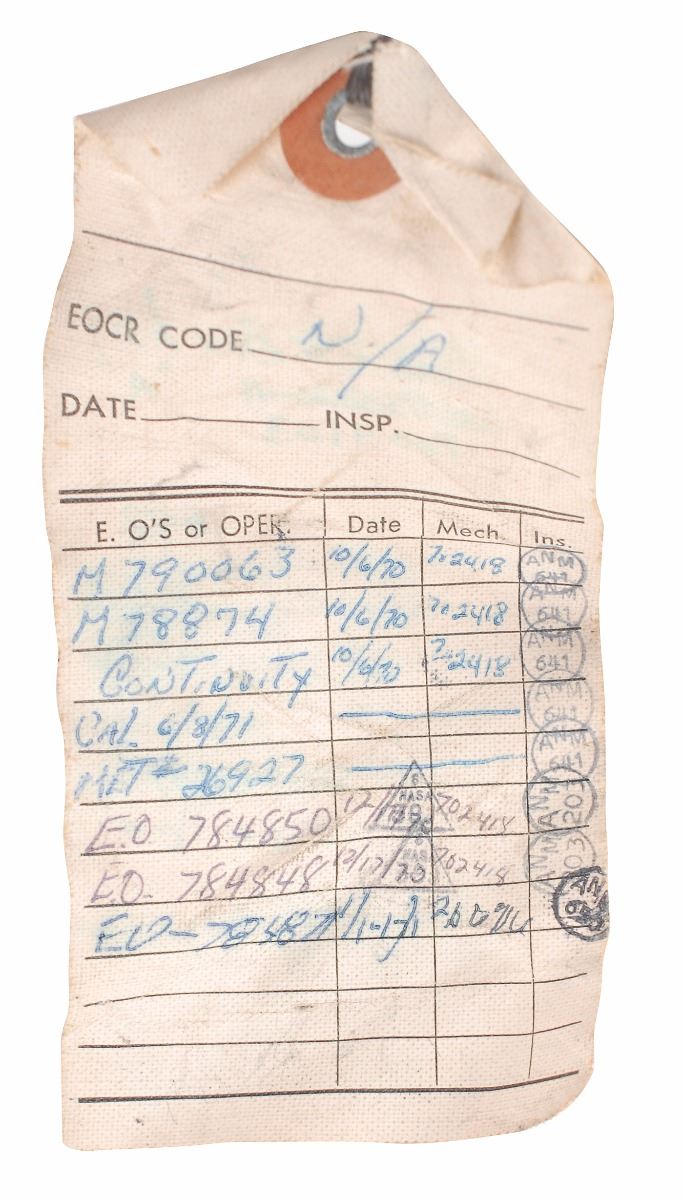 EOCR CODE N/A
DATE INSP.
E. O'S or OPER. Date Mech. Ins.
M 790063 10/6/70 2418 ANM 641
M 78874 10/6/70 2418 ANM 641
CONTINUITY 10/6/70 2418 ANM 641
CAL 6/8/71 ANM 641
MET# 26927 ANM 641
E.O. 784850 702418 ANM 203
NASA
EO. 784848 12/17/70 702418 ANM
EO-